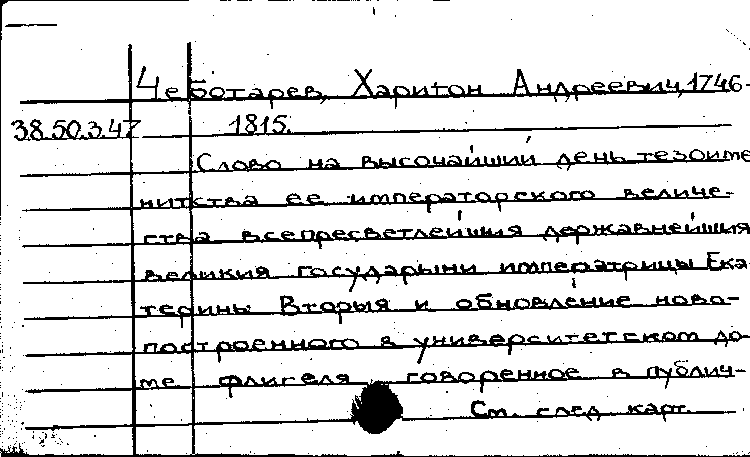 Чеботарев, Харитон Андреевич, 1746-
38.50.3.47 1815.
Слово на высочайший день тезоиме
нитства ее императорского величе-
ства всепресветлейшия державнейшия
великия государыни императрицы Ека
терины Вторыя и обновление ново-
построенного в университетском до-
ме флигеля говоренное в публич-
См. след карт.